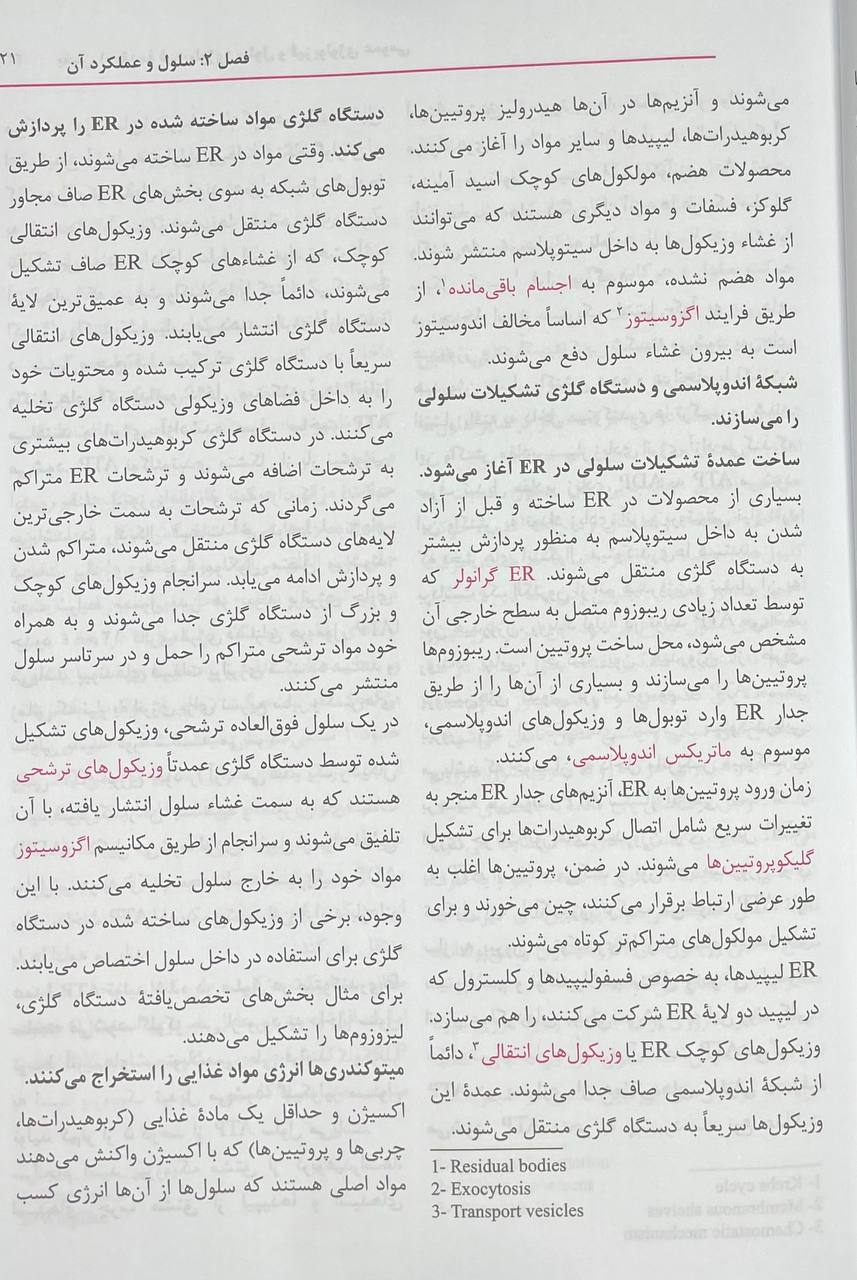 فصل ۲: سلول و عملکرد آن
۲۱
می‌شوند و آنزیم‌ها در آن‌ها هیدرولیز پروتیین‌ها،
کربوهیدرات‌ها، لیپیدها و سایر مواد را آغاز می‌کنند.
محصولات هضم، مولکول‌های کوچک اسید آمینه،
گلوکز، فسفات و مواد دیگری هستند که می‌توانند
از غشاء وزیکول‌ها به داخل سیتوپلاسم منتشر شوند.
مواد هضم نشده، موسوم به اجسام باقی‌مانده۱، از
طریق فرایند اگزوسیتوز۲ که اساساً مخالف اندوسیتوز
است به بیرون غشاء سلول دفع می‌شوند.
شبکهٔ اندوپلاسمی و دستگاه گلژی تشکیلات سلولی
را می‌سازند.
ساخت عمدهٔ تشکیلات سلولی در ER آغاز می‌شود.
بسیاری از محصولات در ER ساخته و قبل از آزاد
شدن به داخل سیتوپلاسم به منظور پردازش بیشتر
به دستگاه گلژی منتقل می‌شوند. ER گرانولر که
توسط تعداد زیادی ریبوزوم متصل به سطح خارجی آن
مشخص می‌شود، محل ساخت پروتیین است. ریبوزوم‌ها
پروتیین‌ها را می‌سازند و بسیاری از آن‌ها را از طریق
جدار ER وارد توبول‌ها و وزیکول‌های اندوپلاسمی،
موسوم به ماتریکس اندوپلاسمی، می‌کنند.
زمان ورود پروتیین‌ها به ER، آنزیم‌های جدار ER منجر به
تغییرات سریع شامل اتصال کربوهیدرات‌ها برای تشکیل
گلیکوپروتیین‌ها می‌شوند. در ضمن، پروتیین‌ها اغلب به
طور عرضی ارتباط برقرار می‌کنند، چین می‌خورند و برای
تشکیل مولکول‌های متراکم‌تر کوتاه می‌شوند.
ER لیپیدها، به خصوص فسفولیپیدها و کلسترول که
در لیپید دو لایهٔ ER شرکت می‌کنند، را هم می‌سازد.
وزیکول‌های کوچک ER یا وزیکول‌های انتقالی۳، دائماً
از شبکهٔ اندوپلاسمی صاف جدا می‌شوند. عمدهٔ این
وزیکول‌ها سریعاً به دستگاه گلژی منتقل می‌شوند.
1- Residual bodies
2- Exocytosis
3- Transport vesicles
دستگاه گلژی مواد ساخته شده در ER را پردازش
می‌کند. وقتی مواد در ER ساخته می‌شوند، از طریق
توبول‌های شبکه به سوی بخش‌های ER صاف مجاور
دستگاه گلژی منتقل می‌شوند. وزیکول‌های انتقالی
کوچک، که از غشاءهای کوچک ER صاف تشکیل
می‌شوند، دائماً جدا می‌شوند و به عمیق‌ترین لایهٔ
دستگاه گلژی انتشار می‌یابند. وزیکول‌های انتقالی
سریعاً با دستگاه گلژی ترکیب شده و محتویات خود
را به داخل فضاهای وزیکولی دستگاه گلژی تخلیه
می‌کنند. در دستگاه گلژی کربوهیدرات‌های بیشتری
به ترشحات اضافه می‌شوند و ترشحات ER متراکم
می‌گردند. زمانی که ترشحات به سمت خارجی‌ترین
لایه‌های دستگاه گلژی منتقل می‌شوند، متراکم شدن
و پردازش ادامه می‌یابد. سرانجام وزیکول‌های کوچک
و بزرگ از دستگاه گلژی جدا می‌شوند و به همراه
خود مواد ترشحی متراکم را حمل و در سرتاسر سلول
منتشر می‌کنند.
در یک سلول فوق‌العاده ترشحی، وزیکول‌های تشکیل
شده توسط دستگاه گلژی عمدتاً وزیکول‌های ترشحی
هستند که به سمت غشاء سلول انتشار یافته، با آن
تلفیق می‌شوند و سرانجام از طریق مکانیسم اگزوسیتوز
مواد خود را به خارج سلول تخلیه می‌کنند. با این
وجود، برخی از وزیکول‌های ساخته شده در دستگاه
گلژی برای استفاده در داخل سلول اختصاص می‌یابند.
برای مثال بخش‌های تخصص‌یافتهٔ دستگاه گلژی،
لیزوزوم‌ها را تشکیل می‌دهند.
میتوکندری‌ها انرژی مواد غذایی را استخراج می‌کنند.
اکسیژن و حداقل یک مادهٔ غذایی (کربوهیدرات‌ها،
چربی‌ها و پروتیین‌ها) که با اکسیژن واکنش می‌دهند
مواد اصلی هستند که سلول‌ها از آن‌ها انرژی کسب